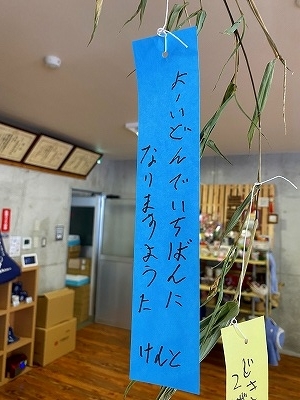 よーいどんでいちばんに
なりますようた
けんと
じさ
2